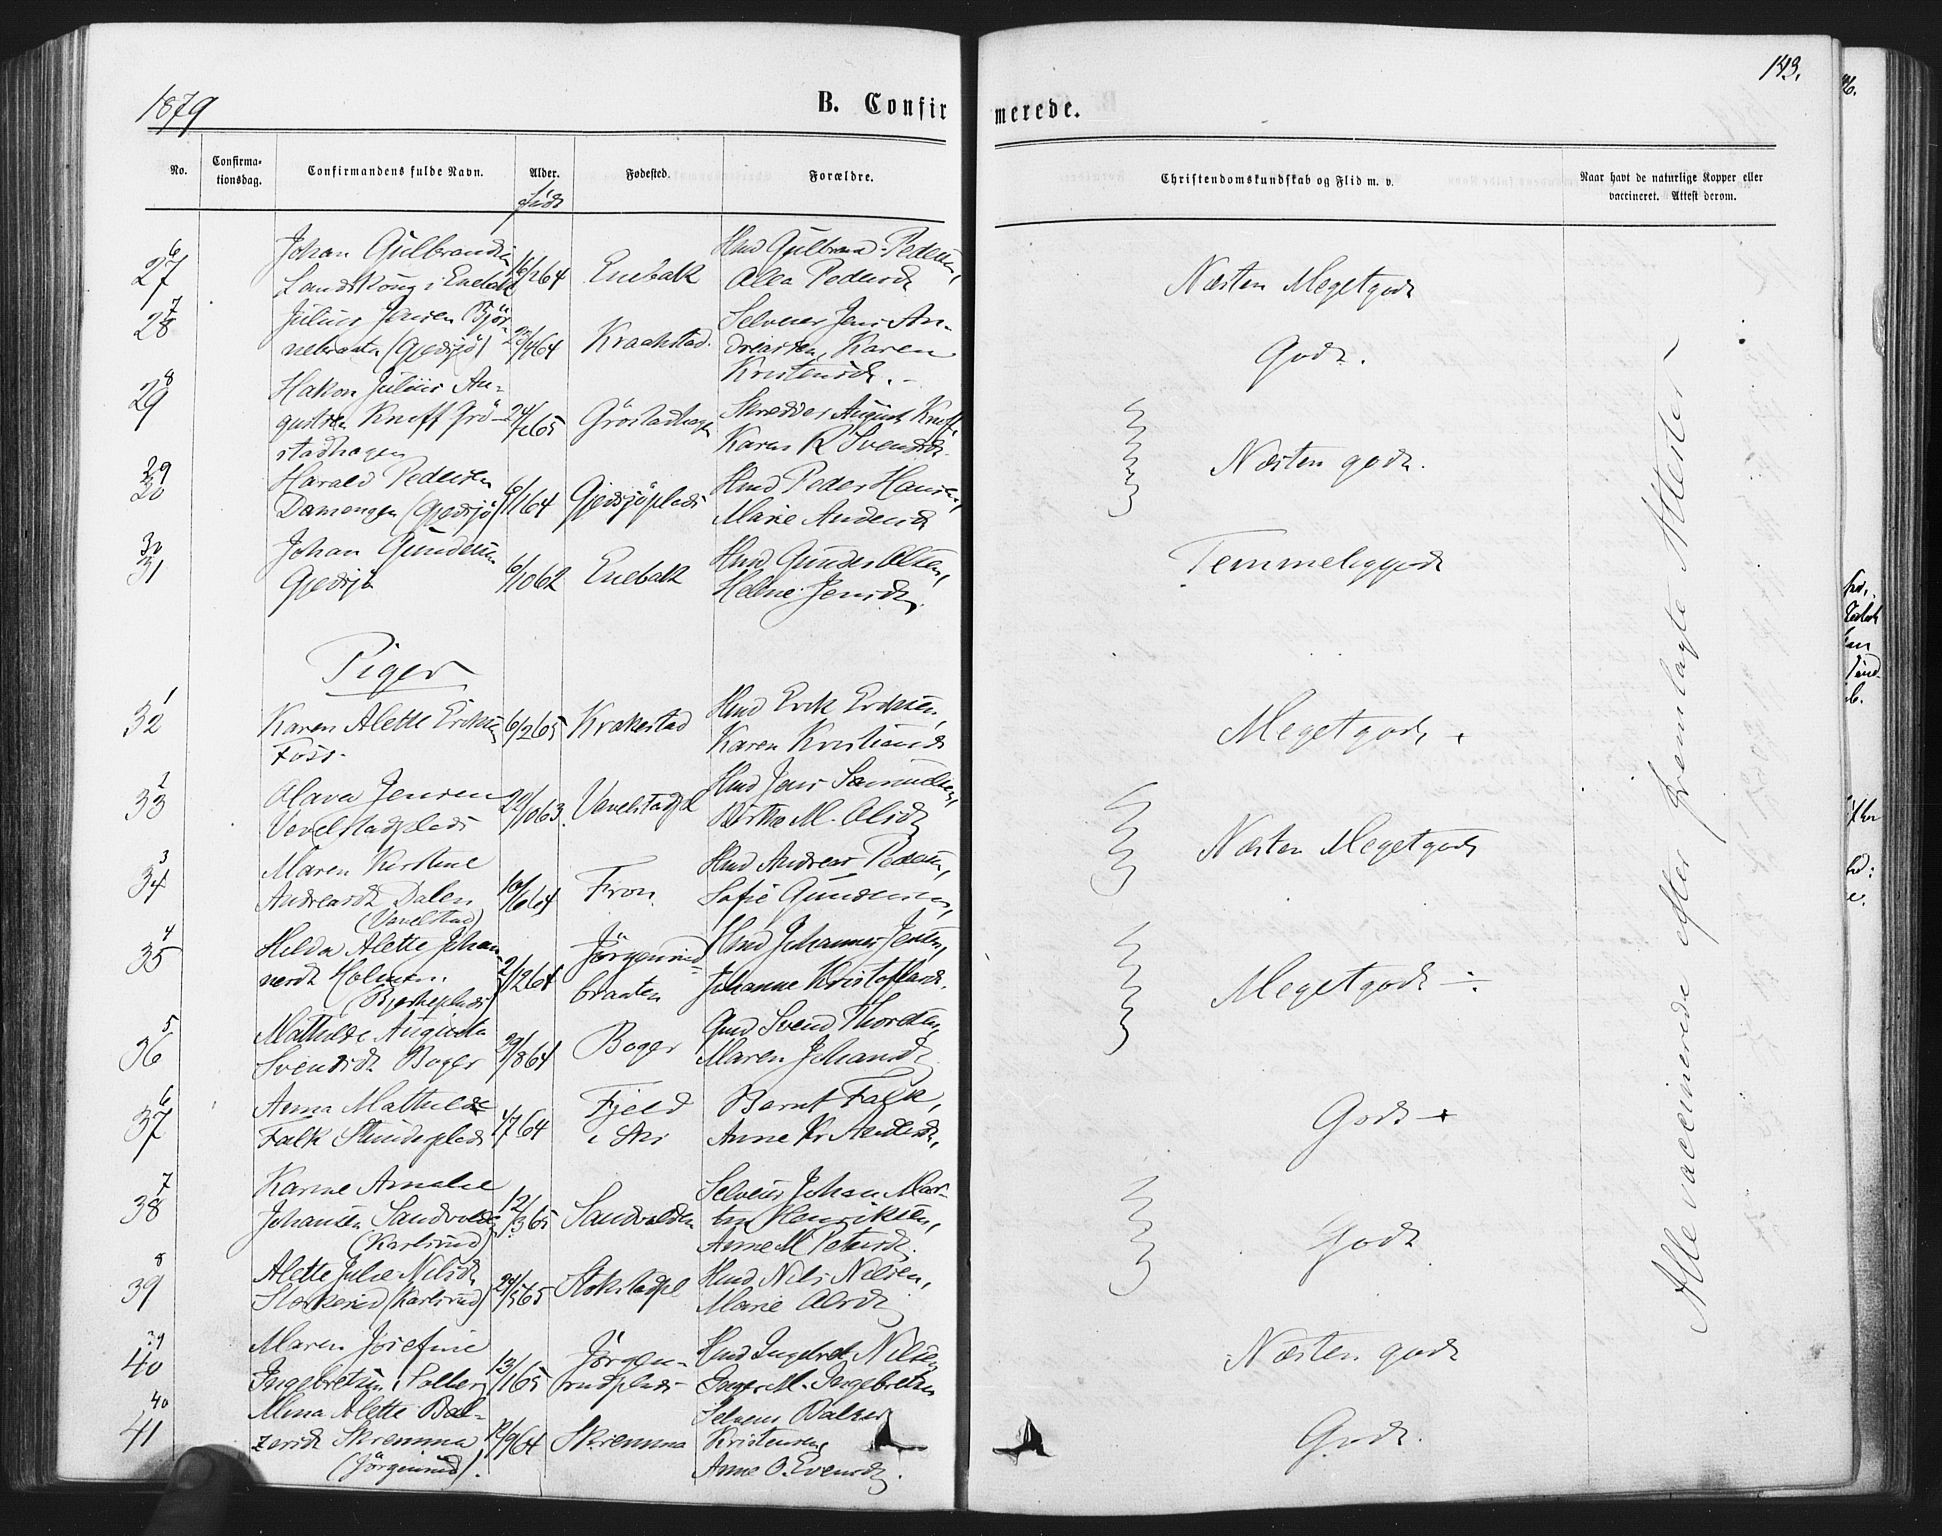 1879
B. Confirmerede.
143.
No.
Confirmationsdag.
Confirmandens fulde Navn.
Alder.
Fødested.
Forældre.
Christendomskundskab og Flid m. v.
Naar havt de naturlige Kopper eller
vaccineret. Attest derom.
født
6
27
Johan Gulbrandsen
i Enebak
64
Enebak
Hmd Gulbrand Pedersen,
Olea Pedersd.
Næsten Megetgodt
7
28
Julius Jensen Bjør-
nebraaten (Gjedsjø)
64
Kraakstad.
Selveier Jens An-
dreassen, Karen
Kristensd.
Godt.
8
29
Hakon Julius Au-
gustsen Knoff Grö-
stadhagen
24/ 65
Gröstadhagen
Skredder August Knoff,
Karen R Svendsd.
Næsten godt.
29
30
Harald Pedersen
Damengen (Gjedsjø)
64
Gjedsjøplads
Hmd Peder Hansen,
Marie Andersd.
30
31
Johan Gundersen
Gjedsjø
6/10 62
Enebak
Hmd Gunder Olsen,
Helene Jensd.
Temmeliggodt
Piger
1
32
Karen Alette Eriksen
Foss.
6/2 65
Krakestad
Hmd Erik Eriksen,
Karen Kristiansd.
Megetgodt +
2
33
Olava Jensen
Vevelstadplads
22/10 63
Vevelstadpl
Hmd Jens Samuelsen,
Birthe M. Olsd.
3
34
Maren Kirstine
Andreasd. Dalen
(Vevelstad)
10/6 64
Fron
Hmd Andreas Pedersen,
Sofie Gundersen,
Næsten Megetgodt
4
35
Hilda Alette Johan-
nesd. Holmen
(Bjerkeplads)
2/12 64
Jørgenrud-
braaten
Hmd Johannes Jensen,
Johanne Kristoffersd.
Megetgodt ÷
5
36
Mathilde Augusta
Svendsd. Boger
29/8 64
Boger
Gmd Svend Thorsten,
Maren Johansd.
6
37
Anna Mathilde
Falk Skinderplads
4/7 64
Fjeld
i Ski
Bernt Falk,
Anne Kr. Andersd.
Godt +
7
38
Karine Amalie
Johansen Sandvolden
(Karlsrud)
12/3 65
Sandvolden
Selveier Johan Mar-
tin Henriksen,
Anne M Petersd.
Godt
8
39
Alette Julie Nilsd.
Storkerud (Karlsrud)
24/5 65
Stokstadpl
Hmd Nils Nilsen,
Marie Olsd.
39
40
Maren Josefine
Ingebretsen Solberg
13/1 65
Jørgen-
rudplads
Hmd Ingebret Nilsen
Inger M. Ingebretsen
Næsten godt
40
41
Mina Alette Bal-
zersd. Skremma
(Jørgenrud).
12/9 64
Skremma
Selveier Balzer
Kristensen
Anne O. Evensd.
Godt.
Alle vaccinerede efter fremlagte Attester